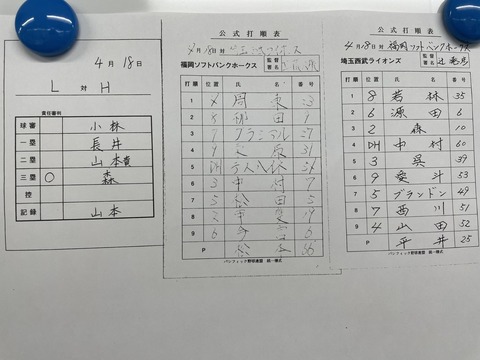 4月18日
L 対 H
責任審判
球審 小林
一塁 長井
二塁 山本貴
三塁 ○ 森
控
記録 山本
公式打順表
4月18日対
福岡ソフトバンクホークス 監督署名
打順 位置 氏名 番号
1 8 周東 23
2 柳田
3 7 グラシアル 27
4 9 栗原 31
5 DH デスパイネ 54
6 3 中村 7
7 5 松田 5
8 2 甲斐 19
9 6 今宮 6
P 松本 66
パシフィック野球連盟 統一様式
公式打順表
4月18日対 福岡ソフトバンクホークス
埼玉西武ライオンズ 監督署名 辻発彦
打順 位置 氏名 番号
1 8 若林 35
2 6 源田 6
3 2 森 10
4 DH 中村 60
5 3 呉 39
6 9 愛斗 53
7 5 ブランドン 49
8 7 西川 51
9 4 山田 52
P 平井 25
パシフィック野球連盟 統一様式